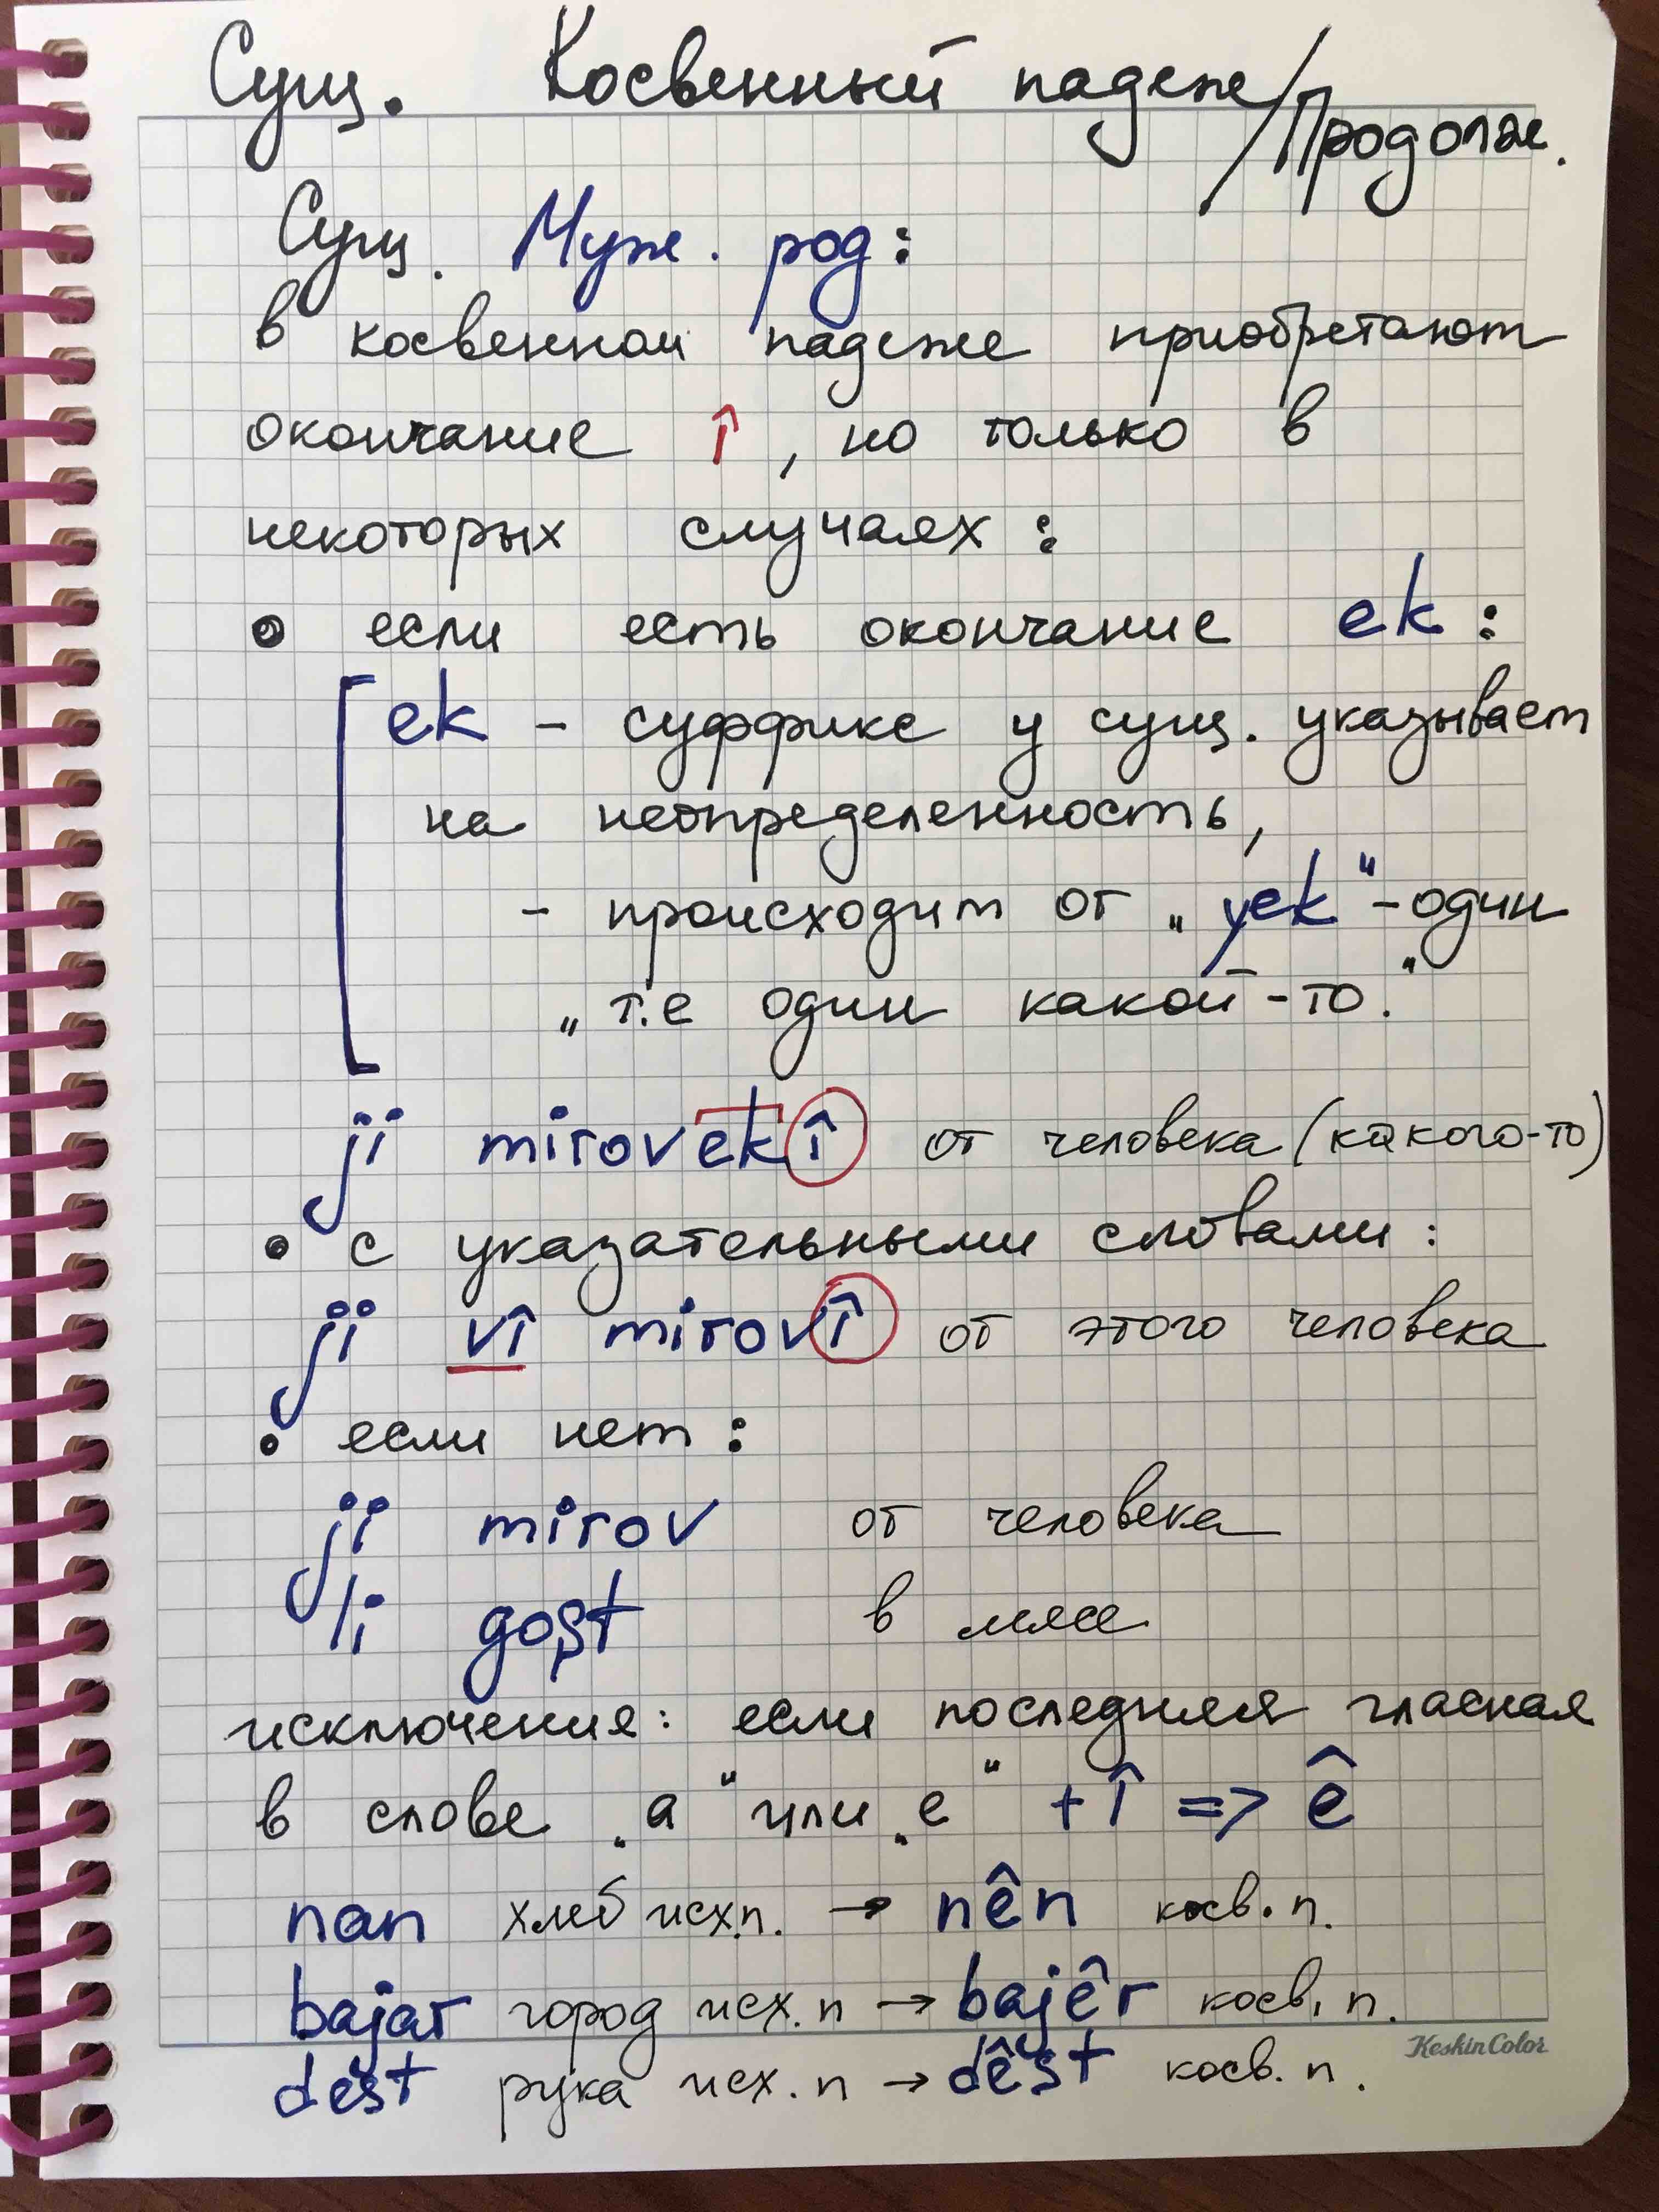 Сущ. Косвенный падеж/Продолж.
Сущ. Муж. род:
в косвенном падеже приобретают
окончание î, но только в
некоторых случаях:
• если есть окончание ek:
ek - суффикс у сущ. указывает
на неопределенность,
- происходит от „yek“ - один
„т.е один какой-то.“
ji mirovekî от человека (какого-то)
• с указательными словами:
ji vî mirovî от этого человека
• если нет:
ji mirov от человека
li goşt в мясе
исключения: если последняя гласная
в слове „a“ или „e“ + î => ê
nan хлеб исх.п. → nên косв. п.
bajar город исх. п → bajêr косв. п.
dest рука исх. п → dêst косв. п.
KeskinColor